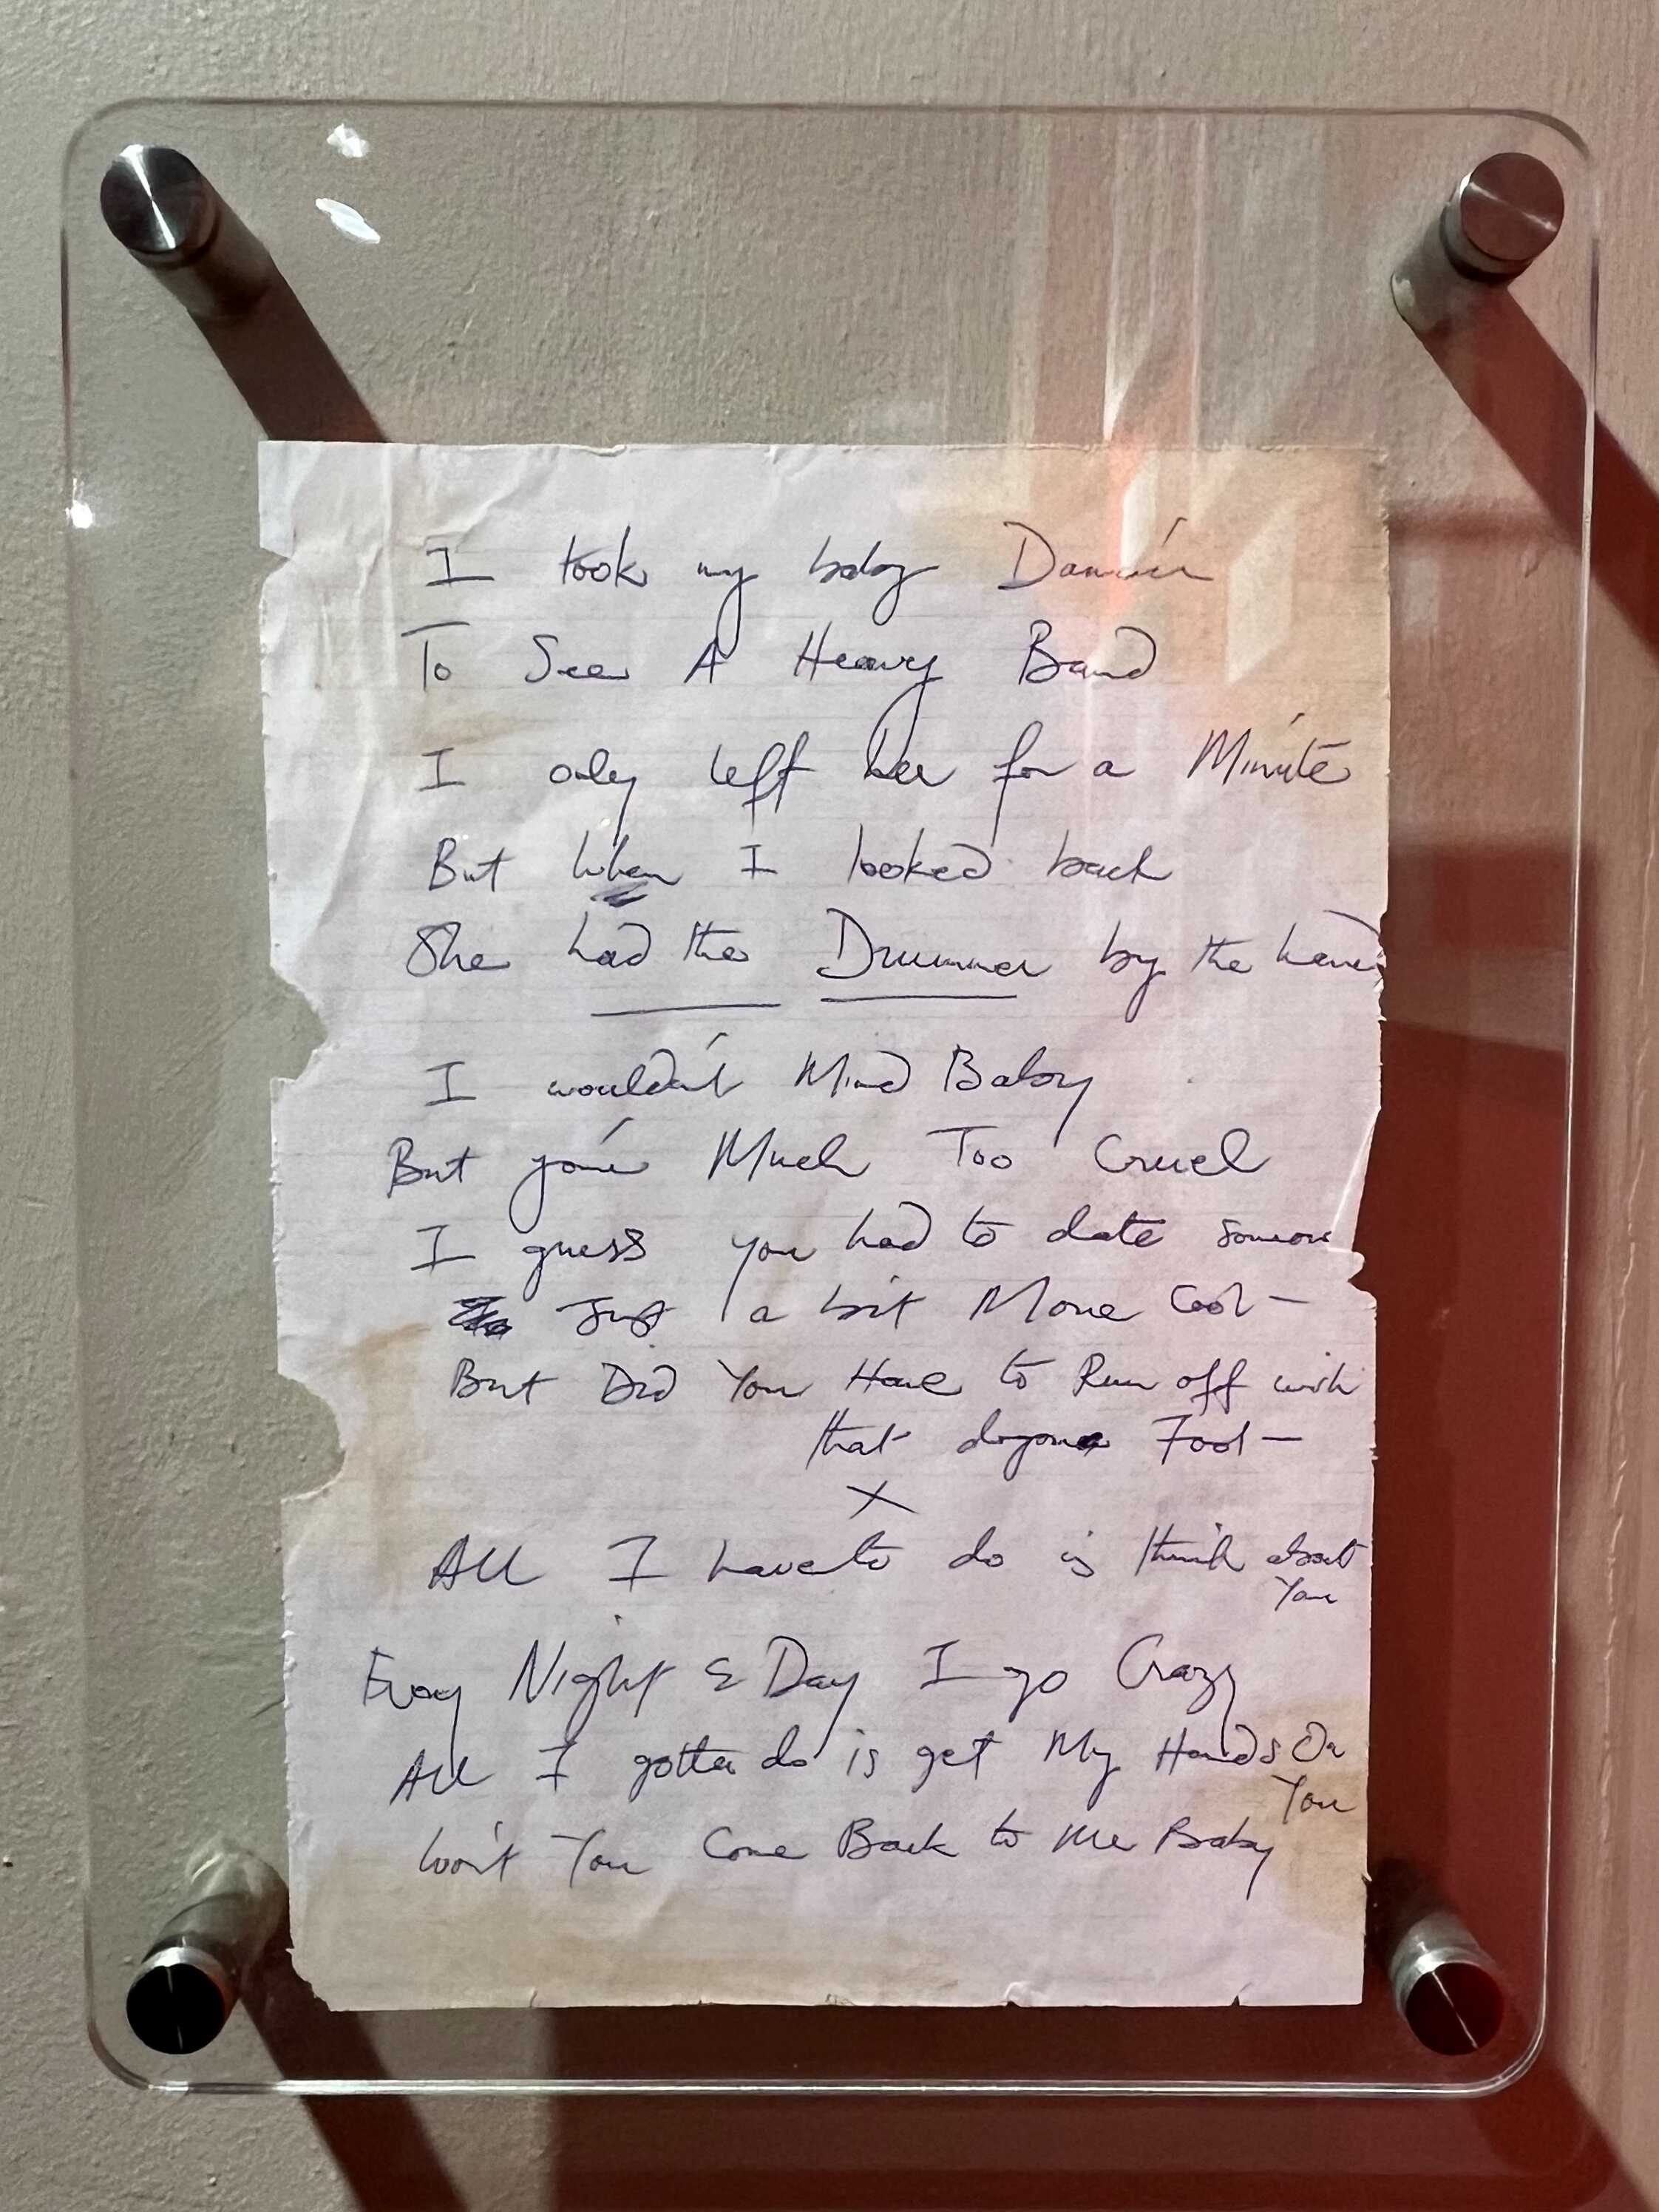 I took my baby Dancin
To See A Heavy Band
I only left her for a Minute
But When I looked back
She had the Drummer by the hand
I wouldn't Mind Baby
But you're Much Too Cruel
I guess you had to date someone
Just a bit More Cool -
But Did You Have to Run off with
that Fool -
X
All I have to do is think about
You
Every Night & Day I go Crazy
All I gotta do is get My Hands On
You
Won't You Come Back to Me Baby